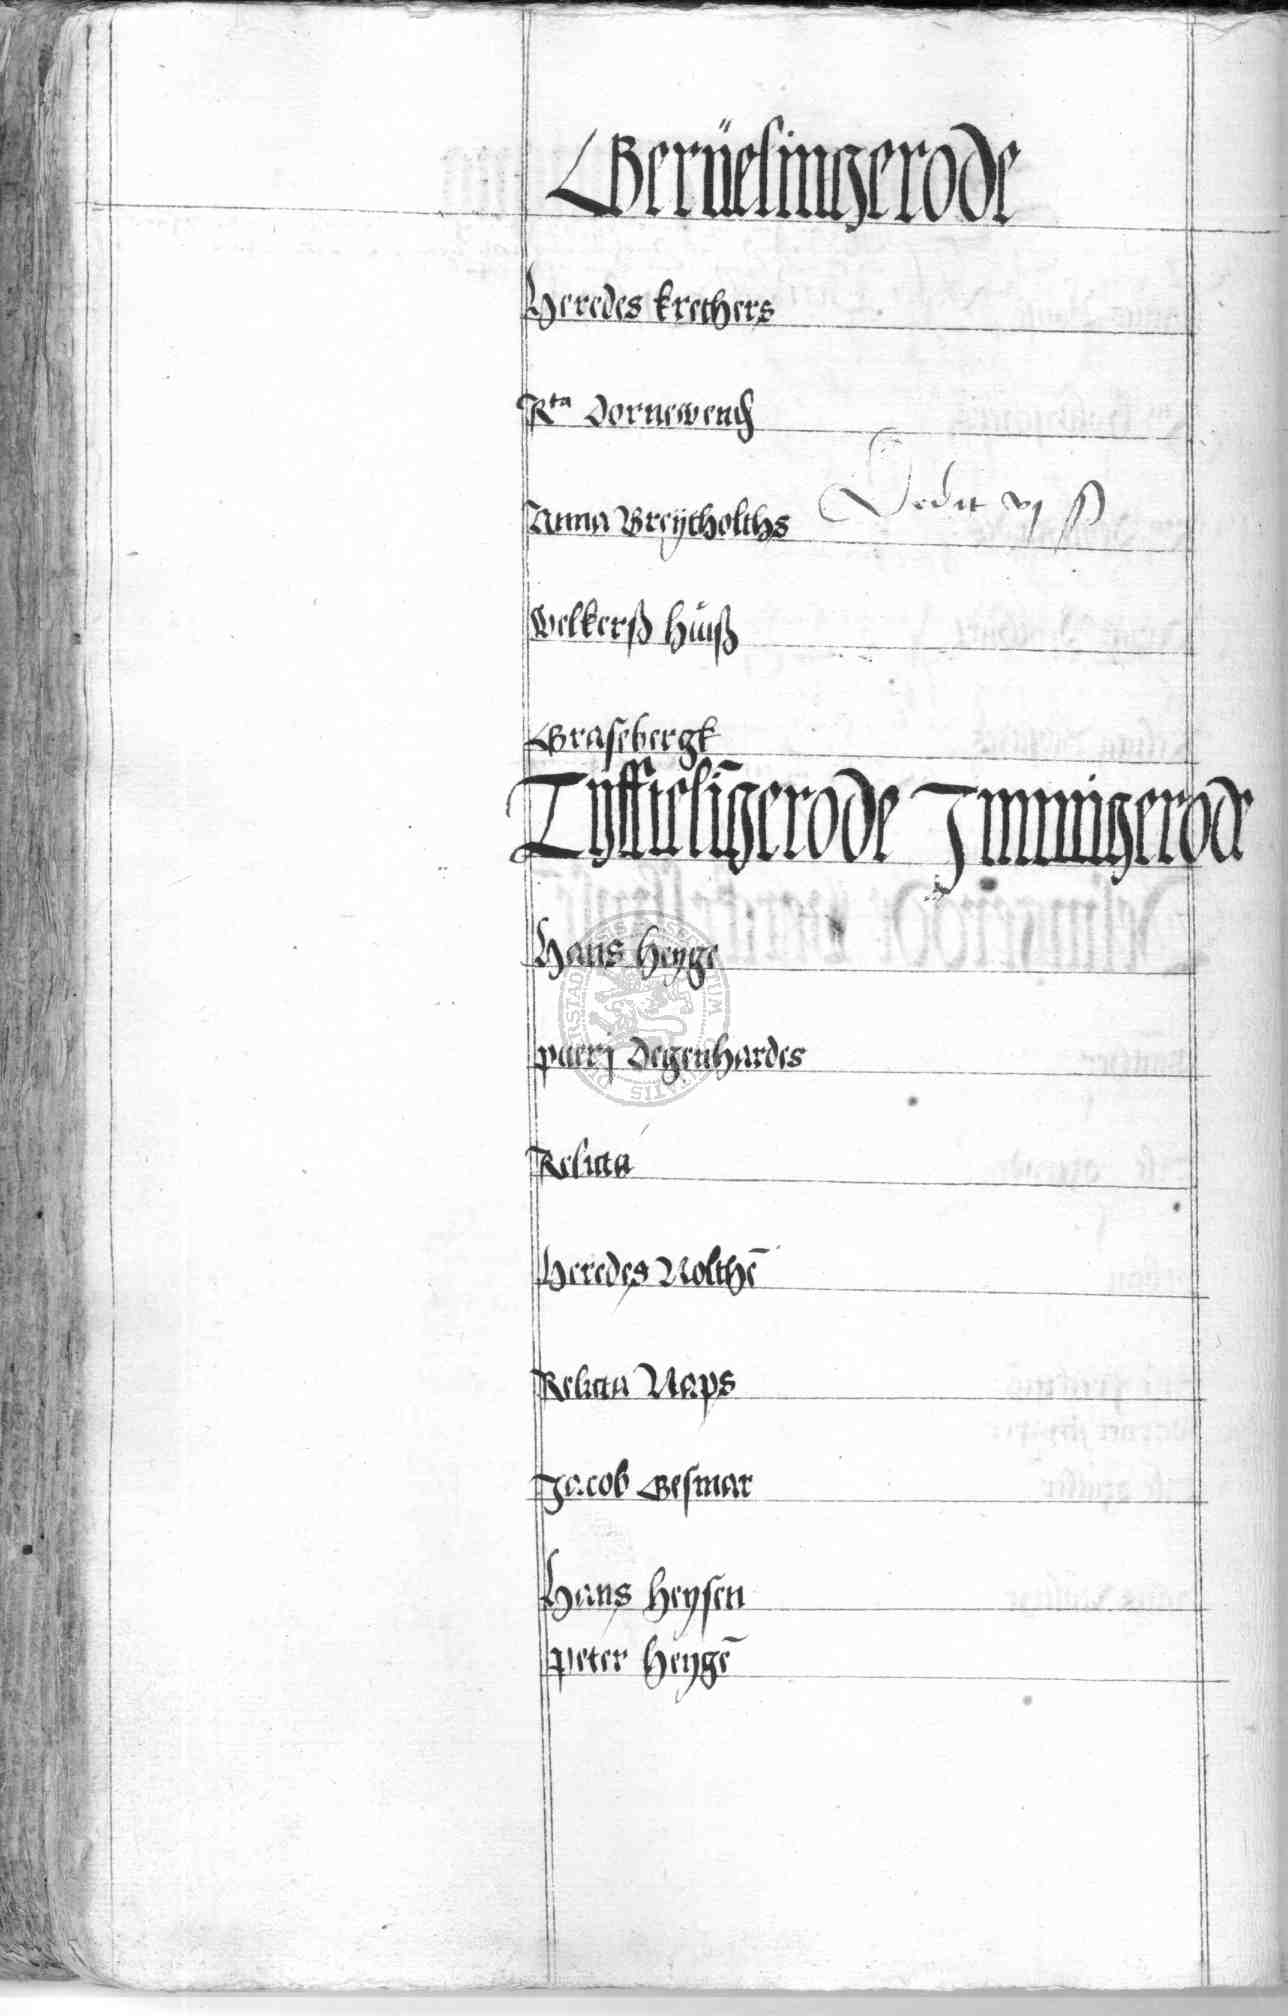 Gerüelingerode
Heredes krethers
Rta Dornewend
Anna Breÿtholths Dedit vj ß
Welkerß Huiß
Grasebergk
Tyfftelīgerode Jmmigerode
Hans Heyge
puerj Degenhardes
Relicta
Heredes Nolthē
Relicta Naps
Jacob Gesmar
Hans Heysen
Peter Heygē